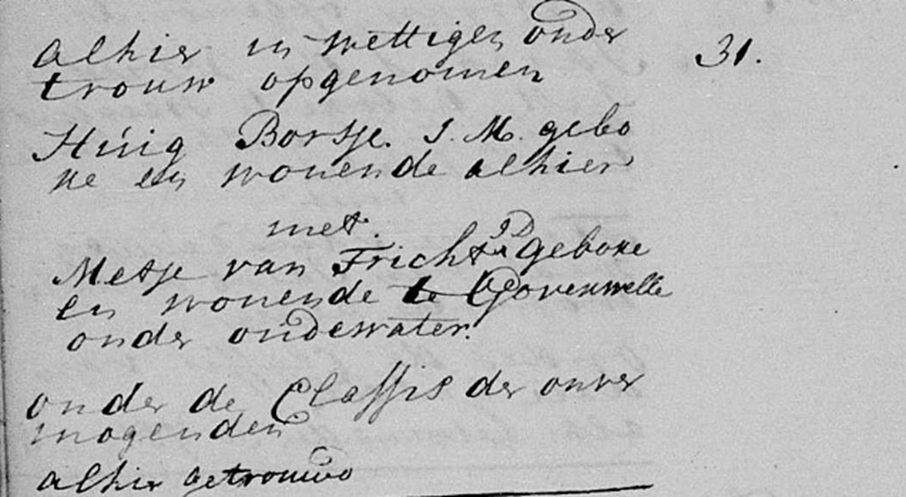 alhier in wettigen onder 31.
trouw opgenomen
Huig Borsje. J. M. gebo
ne en wonende alhier
met.
Metje van Tricht JD gebore
en wonende te Govenwelle
onder oudewater.
onder de Classis der onver
mogenden
alhier getrouwd